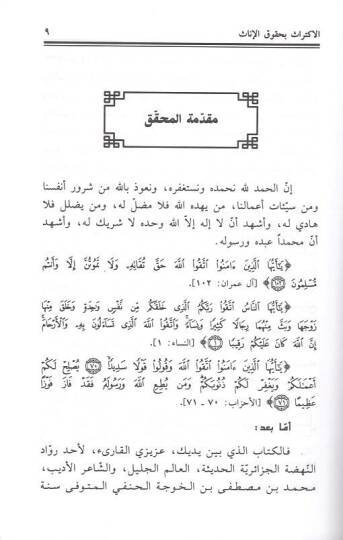 الاكتراث بحقوق الإناث ٩
مقدّمة المحقّق
إنّ الحمد لله نحمده ونستغفره، ونعوذ بالله من شرور أنفسنا
ومن سيّئات أعمالنا، من يهده الله فلا مضلّ له، ومن يضلل فلا
هادي له، وأشهد أنّ لا إله إلاّ الله وحده لا شريك له، وأشهد
أنّ محمداً عبده ورسوله.
﴿يَٰٓأَيُّهَا ٱلَّذِينَ ءَامَنُوا۟ ٱتَّقُوا۟ ٱللَّهَ حَقَّ تُقَائِهِۦ وَلَا تَمُوتُنَّ إِلَّا وَأَنتُم
مُّسْلِمُونَ ١٠٢﴾ [آل عمران: ١٠٢].
﴿يَٰٓأَيُّهَا ٱلنَّاسُ ٱتَّقُوا۟ رَبَّكُمُ ٱلَّذِى خَلَقَكُم مِّن نَّفْسٍ وَٰحِدَةٍ وَخَلَقَ مِنْهَا
زَوْجَهَا وَبَثَّ مِنْهُمَا رِجَالًا كَثِيرًا وَنِسَآءً وَٱتَّقُوا۟ ٱللَّهَ ٱلَّذِى تَسَآءَلُونَ بِهِۦ وَٱلْأَرْحَامَ
إِنَّ ٱللَّهَ كَانَ عَلَيْكُمْ رَقِيبًا ١﴾ [النساء: ١].
﴿يَٰٓأَيُّهَا ٱلَّذِينَ ءَامَنُوا۟ ٱتَّقُوا۟ ٱللَّهَ وَقُولُوا۟ قَوْلًا سَدِيدًا ٧٠ يُصْلِحْ لَكُمْ
أَعْمَٰلَكُمْ وَيَغْفِرْ لَكُمْ ذُنُوبَكُمْ وَمَن يُطِعِ ٱللَّهَ وَرَسُولَهُۥ فَقَدْ فَازَ فَوْزًا
عَظِيمًا ٧١﴾ [الأحزاب: ٧٠ ـ ٧١].
أمّا بعد:
فالكتاب الذي بين يديك، عزيزي القارىء، لأحد روّاد
النّهضة الجزائريّة الحديثة، العالم الجليل، والشّاعر الأديب،
محمد بن مصطفى بن الخوجة الحنفي المتوفى سنة